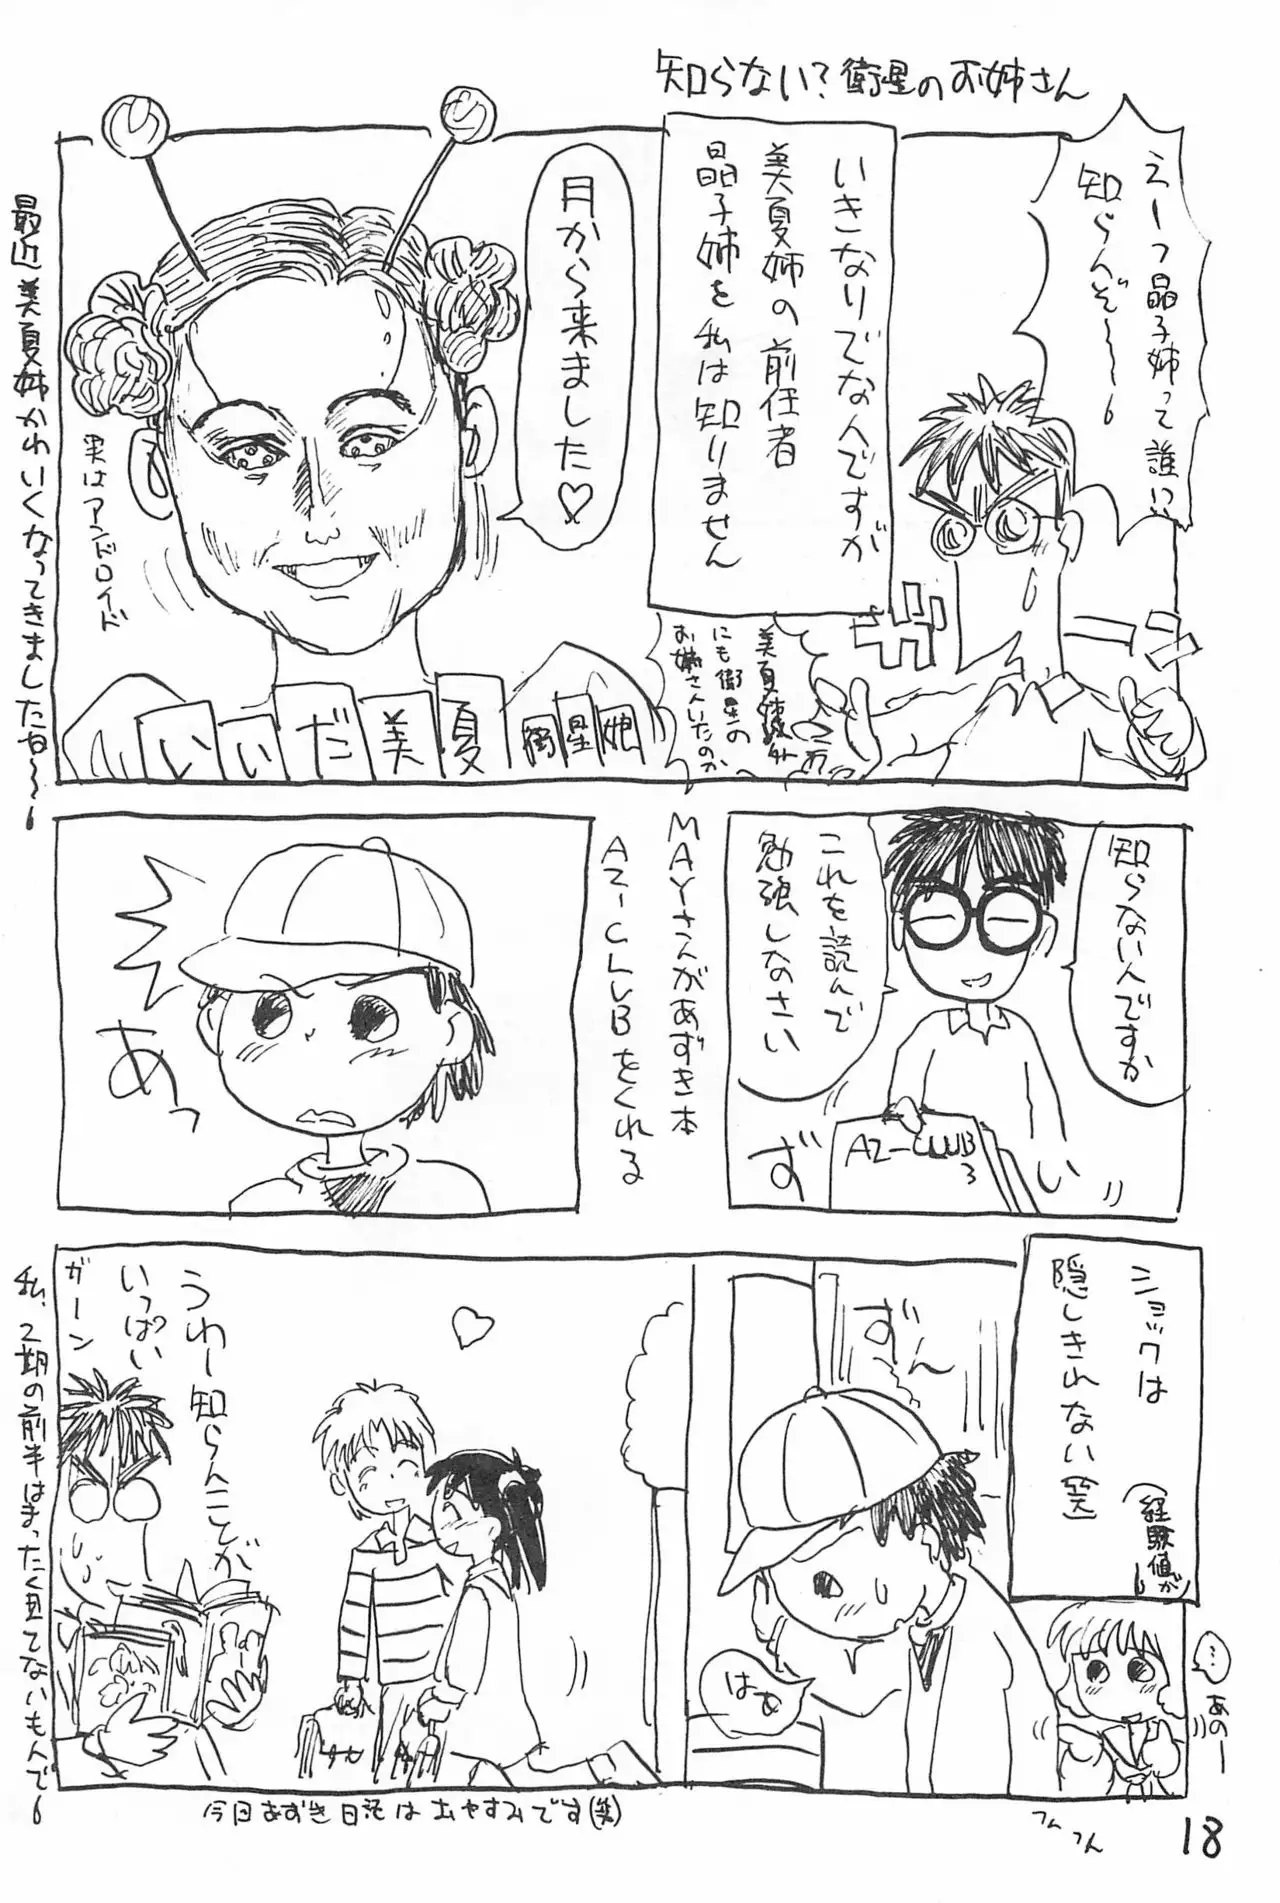 知らない?衛星のお姉さん
えーっ晶子姉って誰い
知らんぞ〜〜
ガーン
いきなりでなんですが
美夏姉の前任者
晶子姉を私は知りません
美夏姉以外
にも衛星の
お姉さんいたのか
月から来ました♡
実はアンドロイド
いいだ美夏 衛星娘
最近美夏姉かわいくなってきましたね〜
知らないんですか
これを読んで
勉強しなさい
AZ-CLUB
3
ずい
MAYさんがあずき本
AZ-CLUBをくれる
あっ
ショックは
隠しきれない(笑)
(経験値が)
ずーん
はぁ
…
あのー
うわー知らんことが
いっぱい
ガーン
私、2期の前半はまったく見てないもんで
今日あずき日記はおやすみです(笑)
ふん
ふん
18